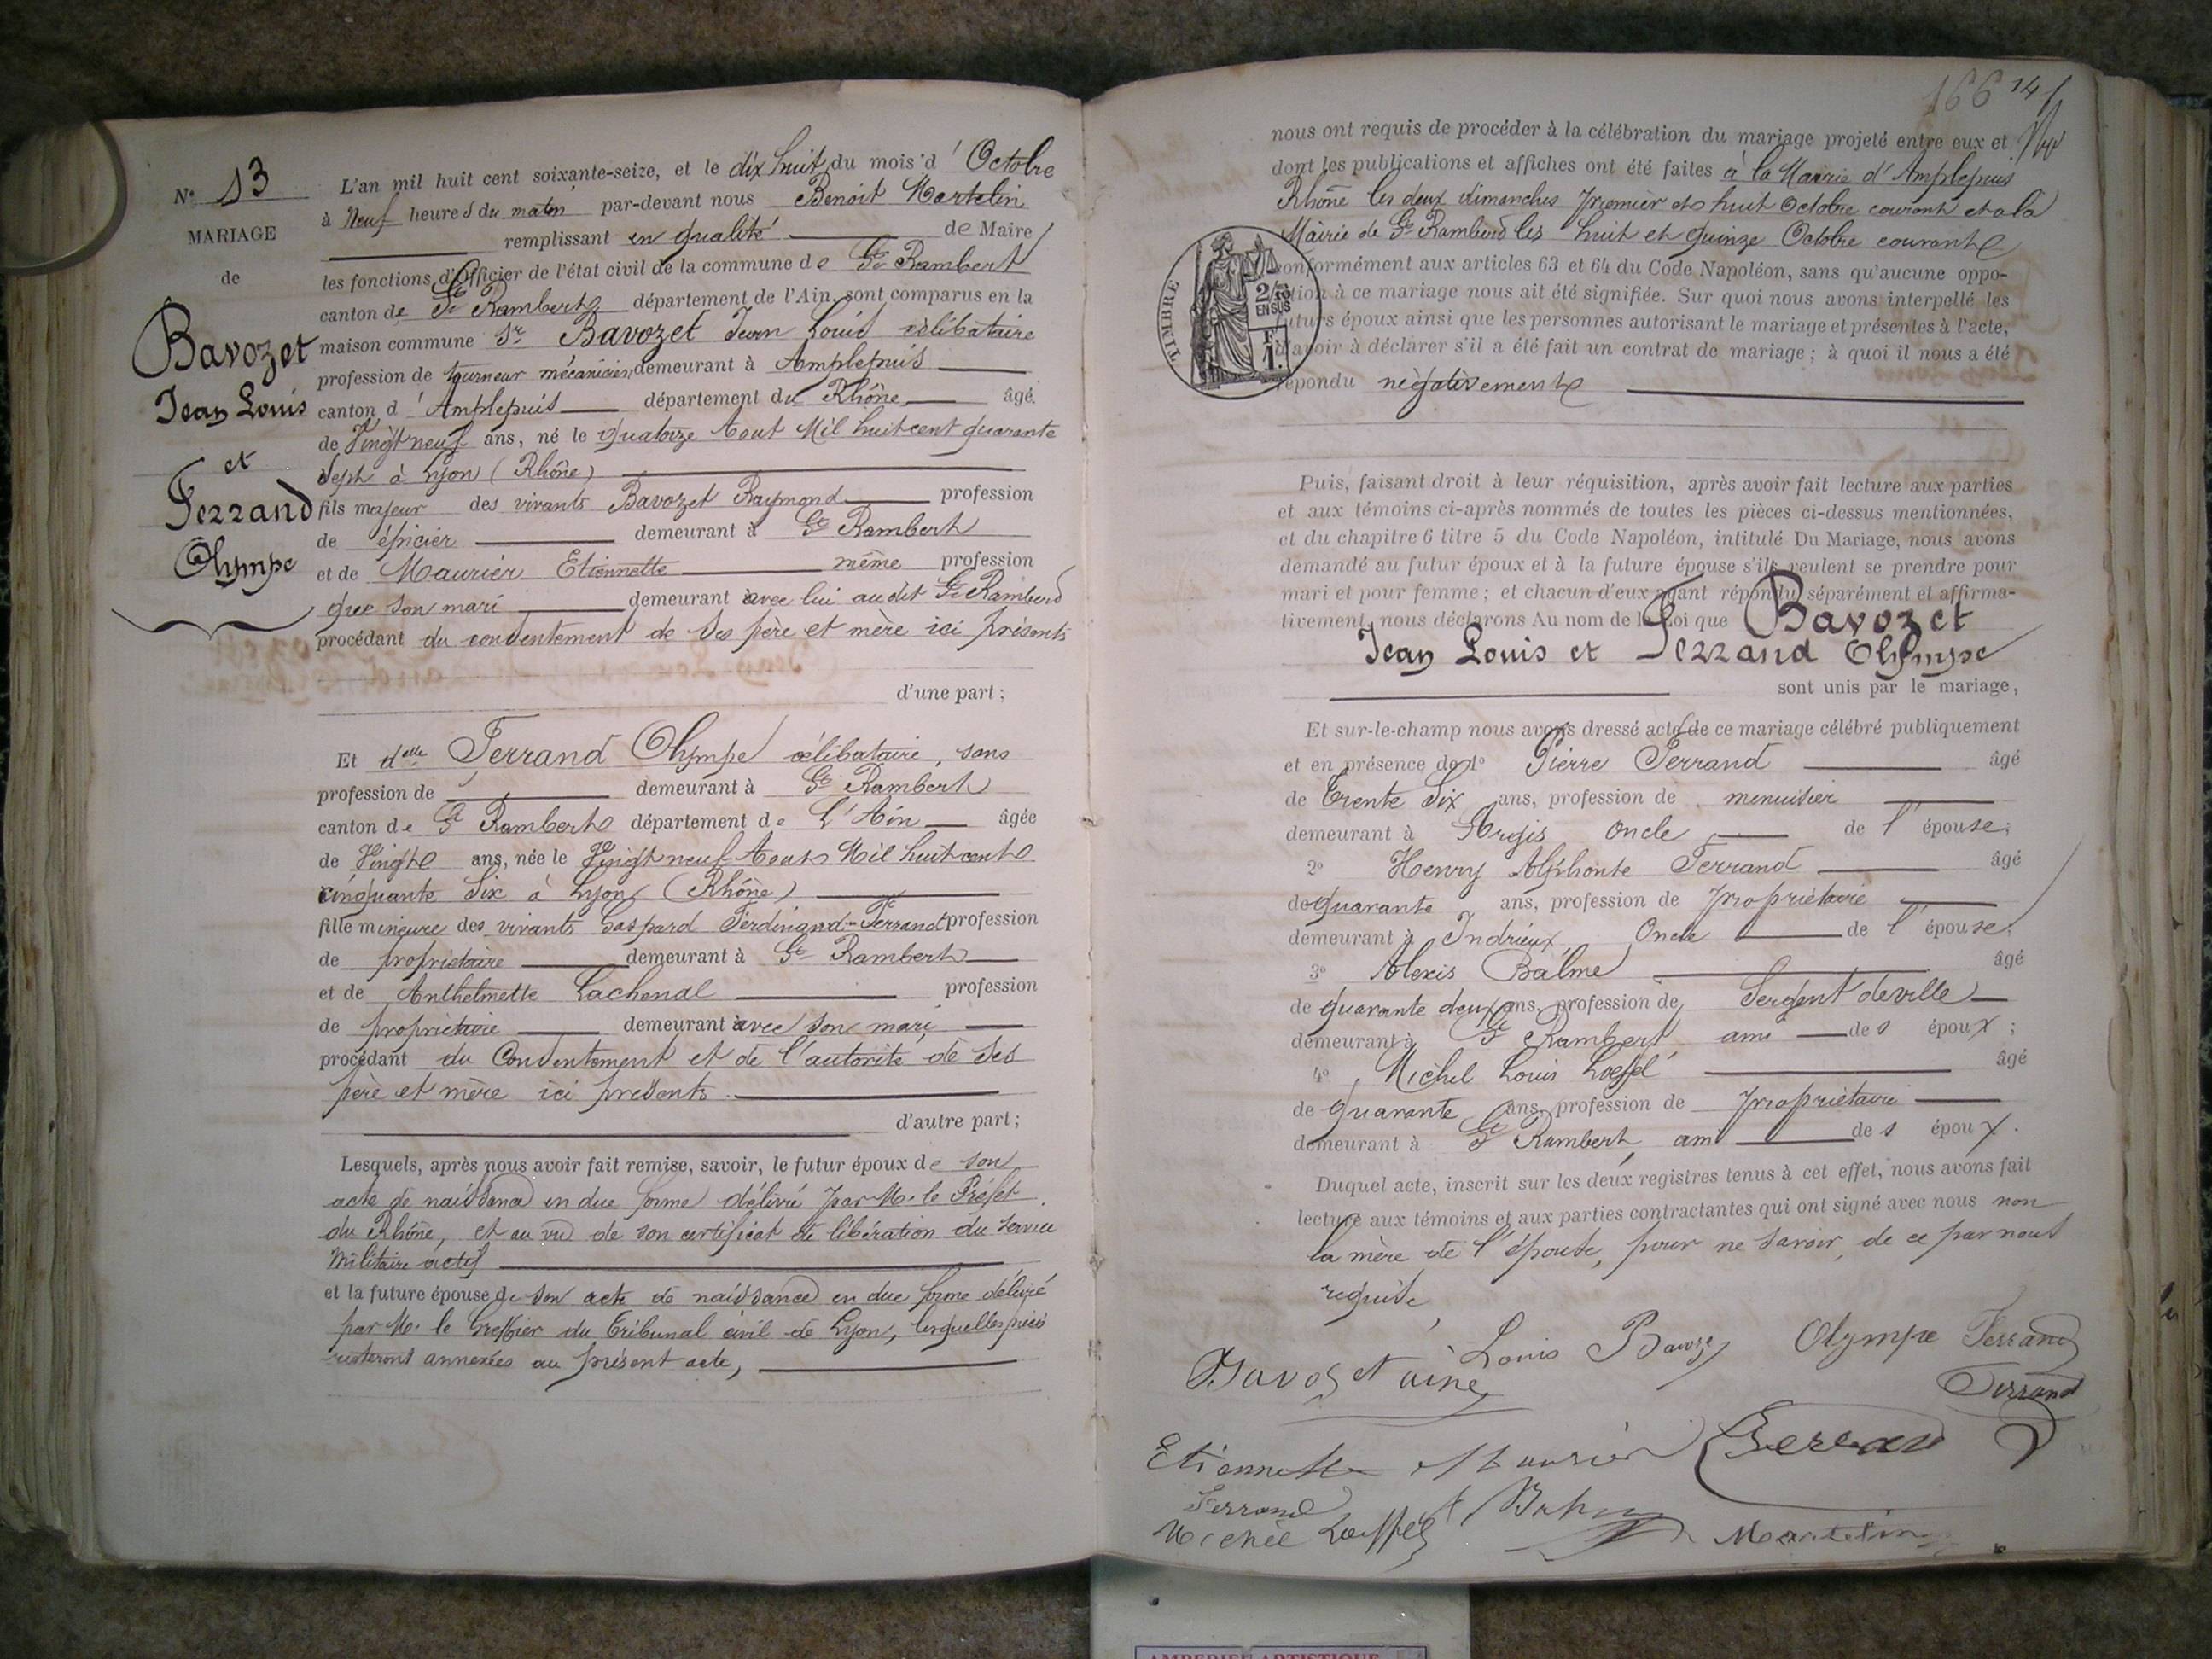 N° 13
MARIAGE
de
Bavozet
Jean Louis
et
Ferrand
Olympe
L'an mil huit cent soixante-seize, et le dix huit du mois d'Octobre
à Neuf heures du matin par-devant nous Benoit Martelin
remplissant en qualité de Maire
les fonctions d'Officier de l'état civil de la commune de St Rambert
canton de St Rambert département de l'Ain, sont comparus en la
maison commune Sr Bavozet Jean Louis célibataire
profession de tourneur mécanicien demeurant à Amplepuis
canton d'Amplepuis département du Rhône âgé
de Vingt neuf ans, né le quatorze Aout Mil huit cent quarante
Sept à Lyon (Rhône)
fils majeur des vivants Bavozet Raymond profession
de épicier demeurant à St Rambert
et de Maurier Etiennette même profession
que son mari demeurant avec lui audit St Rambert
procédant du consentement de ses père et mère ici présents
d'une part;
Et delle Ferrand Olympe célibataire, sans
profession de demeurant à St Rambert
canton de St Rambert département de L'Ain âgée
de Vingt ans, née le Vingt neuf Aout Mil huit cent
cinquante Six à Lyon (Rhône)
fille mineure des vivants Gaspard Ferdinand Ferrand profession
de propriétaire demeurant à St Rambert
et de Anthelmette Lachenal profession
de propriétaire demeurant avec son mari
procédant du Consentement et de l'autorité de ses
père et mère ici présents.
d'autre part;
Lesquels, après nous avoir fait remise, savoir, le futur époux de son
acte de naissance en due forme délivré par M. le Préfet
du Rhône, et au vu de son certificat de libération du service
Militaire actif
et la future épouse de son acte de naissance en due forme délivré
par M. le Greffier du Tribunal civil de Lyon, lesquelles pièces
resteront annexées au présent acte,
166 141
nous ont requis de procéder à la célébration du mariage projeté entre eux et
dont les publications et affiches ont été faites à la Mairie d'Amplepuis
Rhône les deux dimanches premier et huit Octobre courant et à la
Mairie de St Rambert les huit et quinze Octobre courant
TIMBRE
2/10 EN SUS
1 F.
conformément aux articles 63 et 64 du Code Napoléon, sans qu'aucune oppo-
sition à ce mariage nous ait été signifiée. Sur quoi nous avons interpellé les
futurs époux ainsi que les personnes autorisant le mariage et présentes à l'acte,
d'avoir à déclarer s'il a été fait un contrat de mariage; à quoi il nous a été
répondu négativement
Puis, faisant droit à leur réquisition, après avoir fait lecture aux parties
et aux témoins ci-après nommés de toutes les pièces ci-dessus mentionnées,
et du chapitre 6 titre 5 du Code Napoléon, intitulé Du Mariage, nous avons
demandé au futur époux et à la future épouse s'ils veulent se prendre pour
mari et pour femme; et chacun d'eux ayant répondu séparément et affirma-
tivement, nous déclarons Au nom de la Loi que Bavozet
Jean Louis et Ferrand Olympe
sont unis par le mariage,
Et sur-le-champ nous avons dressé acte de ce mariage célébré publiquement
et en présence de 1° Pierre Ferrand âgé
de Trente Six ans, profession de menuisier
demeurant à Argis Oncle de l'épouse;
2° Henry Alphonse Ferrand âgé
de quarante ans, profession de propriétaire
demeurant à Indrieux Oncle de l'épouse;
3° Alexis Balme âgé
de quarante deux ans, profession de Sergent de ville
demeurant à St Rambert ami des époux;
4° Michel Louis Loeffel âgé
de quarante ans, profession de propriétaire
demeurant à St Rambert, ami des époux.
Duquel acte, inscrit sur les deux registres tenus à cet effet, nous avons fait
lecture aux témoins et aux parties contractantes qui ont signé avec nous non
la mère de l'épouse, pour ne savoir, de ce par nous
requise
Louis Bavozet Olympe Ferrand
Bavozet ainé
Ferrand
Etiennette Maurier
Ferrand
Michel Loeffel Martelin
AMBERIEU ARTISTIQUE